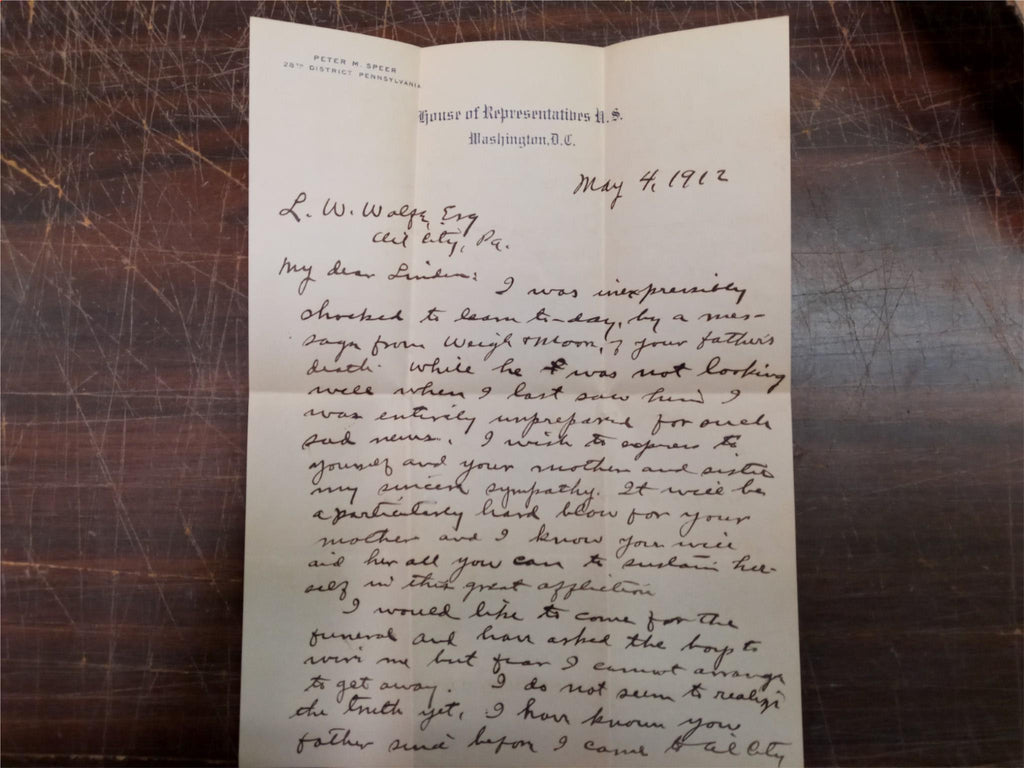 PETER M. SPEER
28TH DISTRICT PENNSYLVANIA
House of Representatives U.S.
Washington, D.C.
May 4, 1912
L. W. Wolfe, Esq
Oil City, Pa.
My dear Linden: I was inexpressibly
shocked to learn to-day, by a mes-
sage from Weigle & Moon, of your father's
death. While he was not looking
well when I last saw him I
was entirely unprepared for such
sad news. I wish to express to
yourself and your mother and sister
my sincere sympathy. It will be
a particularly hard blow for your
mother and I know you will
aid her all you can to sustain her-
self in this great affliction
I would like to come for the
funeral and have asked the boys to
wire me but fear I cannot arrange
to get away. I do not seem to realize
the truth yet. I have known your
father since before I came to Oil City